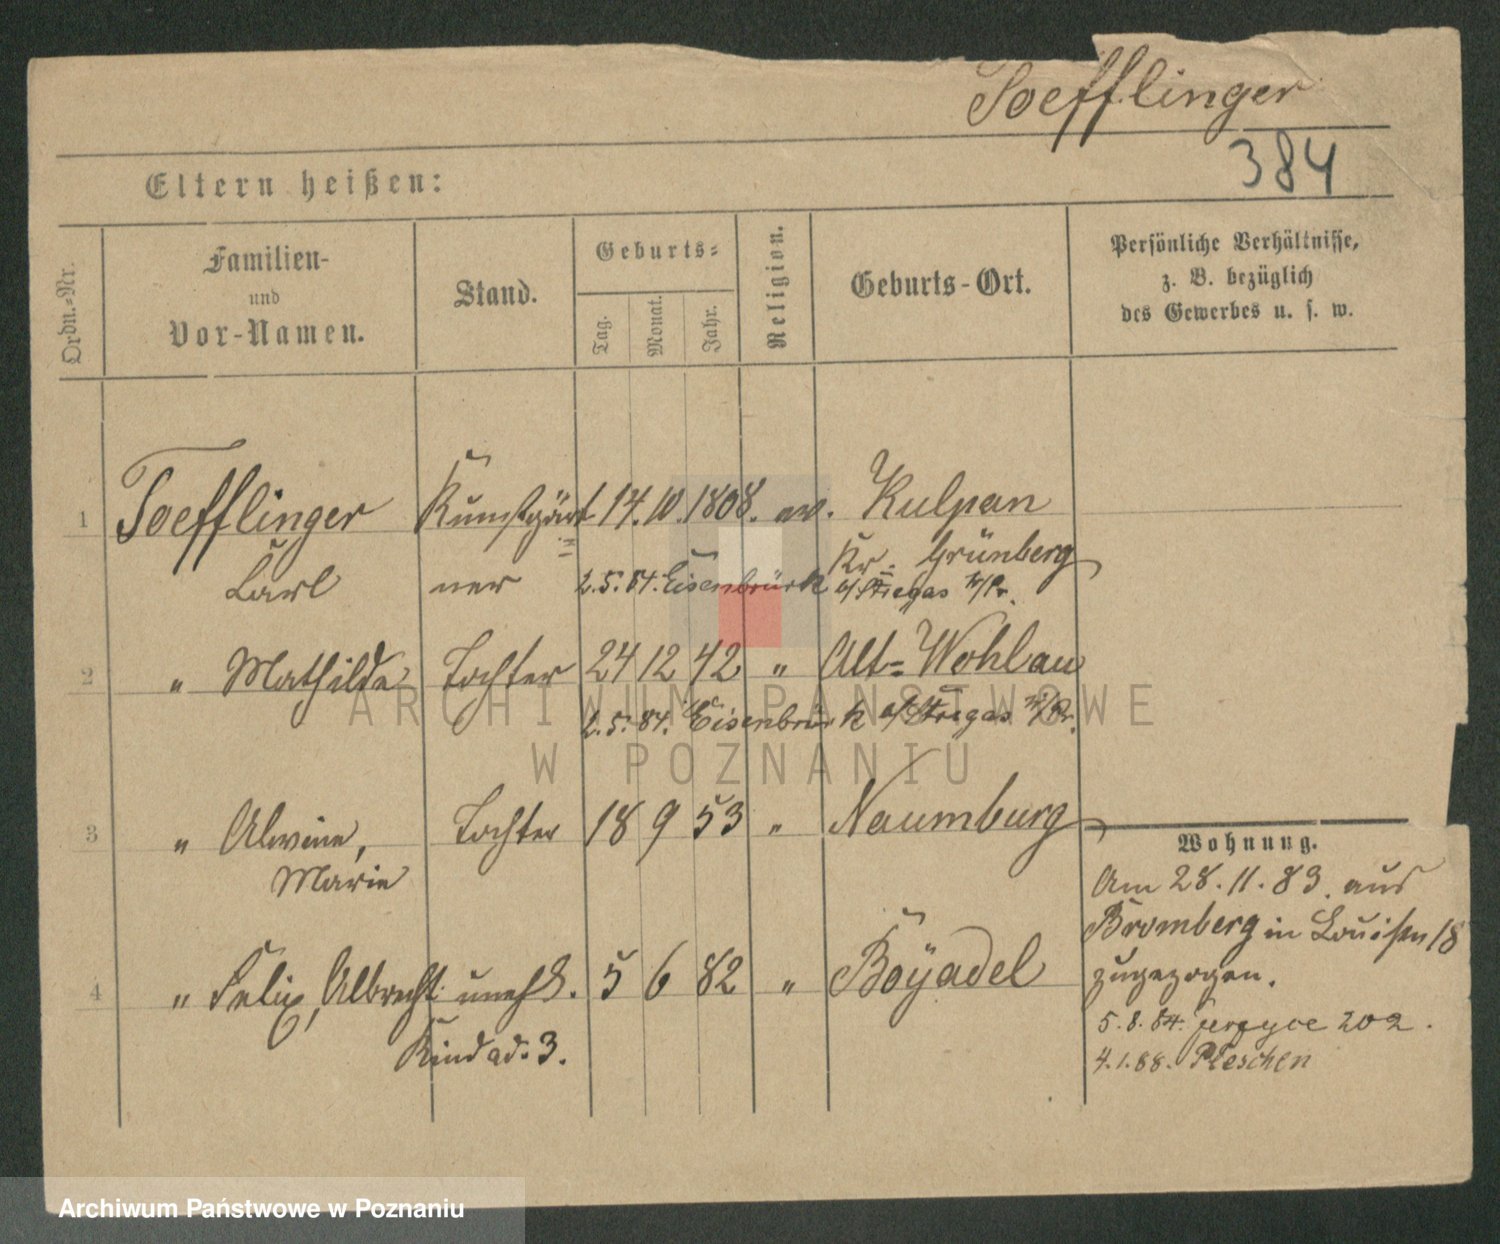 Toefflinger
384
Eltern heißen:
Ordn.-Nr.
Familien-
und
Vor-Namen.
Stand.
Geburts-
Tag.
Monat.
Jahr.
Religion.
Geburts-Ort.
Persönliche Verhältnisse,
z. B. bezüglich
des Gewerbes u. s. w.
1 Toefflinger Kunstgärt 14. 10. 1808. ev. Kulpan
Kr. Grünberg
Carl ner 2.5.84. Eisenbrück
2 " Mathilde Tochter 24 12 42 " Alt-Wohlau
2.5.84. Eisenbrück
3 " Alwine, Tochter 18 9 53 " Naumburg
Marie
4 " Felix, Albrecht unehl. 5 6 82 " Boÿadel
Kind ad. 3.
Wohnung.
Am 28.11.83. aus
Bromberg in Louisen 18
zugezogen.
5.8.84. 202.
4.1.88. Pleschen
ARCHIWUM PAŃSTWOWE
W POZNANIU
Archiwum Państwowe w Poznaniu